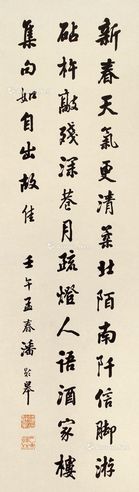 新春天氣更清美北陌南阡信脚游
砧杵敲殘深巷月疏燈人語酒家樓
集句如自出故佳 壬午孟春潘齡皋